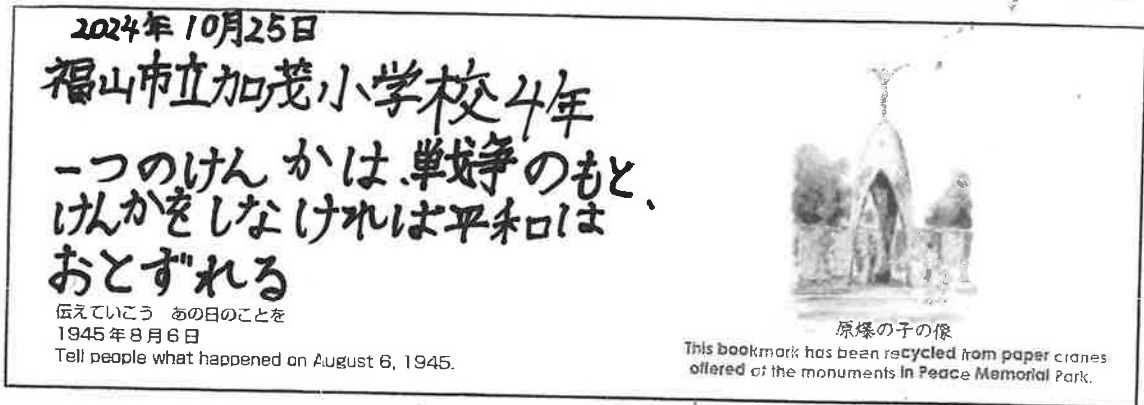 2024年10月25日
福山市立加茂小学校4年
一つのけんかは、戦争のもと、
けんかをしなければ平和は
おとずれる
伝えていこう　あの日のことを
1945年8月6日
Tell people what happened on August 6, 1945.
原爆の子の像
This bookmark has been recycled from paper cranes
offered at the monuments in Peace Memorial Park.